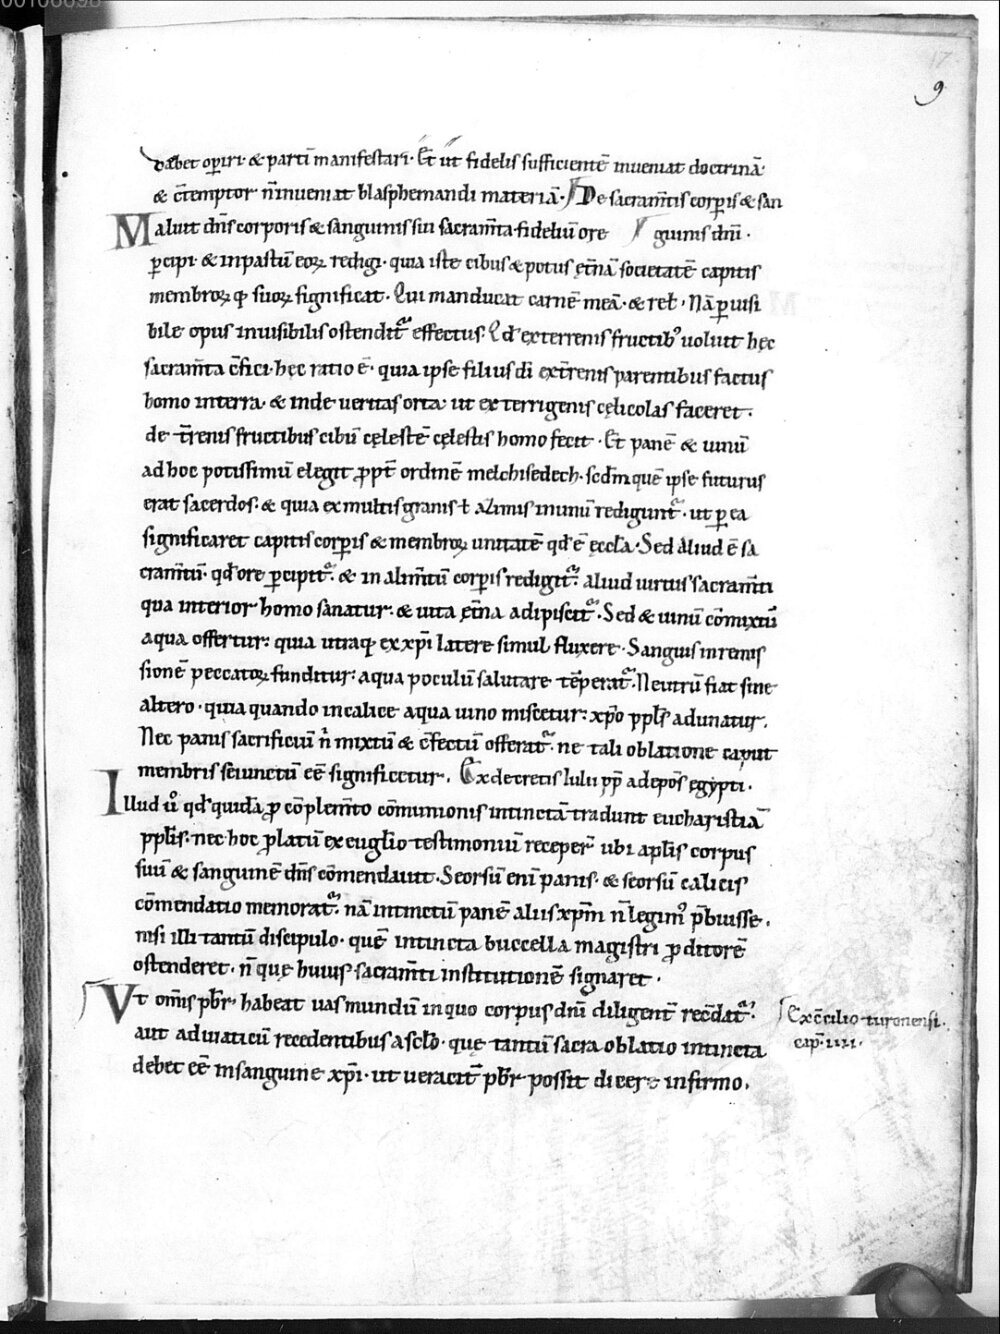 00106698
17
9
debet operiri· & partī manifestari· Et ut fidelis sufficientē inueniat doctrinā·
& c̄temptor n̄ inueniat blasphemandi materiā· De sacram̄tis corꝑis & san
Maluit dn̄s corporis & sanguinis sui sacram̄ta fideliū ore guinis dn̄i·
ꝑcipi· & in pastum eoꝝ redigi· quia iste cibus & potus ęt̄nā societatē capitis
membroꝝ q; suoꝝ significat· Qui manducat carnē meā· & rel̄· Nā ꝑ uisi
bile opus inuisibilis ostendit᷑ effectus· Qd̄ ex terrenis fructib; uoluit hęc
sacram̄ta c̄fici· hęc ratio ē· quia ipse filius dī ext̄renis parentibus factus
homo interra· & inde ueritas orta· ut ex terrigenis cęlicolas faceret·
de t̄renis fructibus cibū cęlestē cęlestis homo fecit· Et panē & uinū
ad hoc potissimū elegit ꝓpt̄ ordinē melchisedech· scd̄m quē ipse futurus
erat sacerdos· & quia ex multis granis ł acinis inunū redigunt᷑· ut ꝑ ea
significaret capitis corꝑis & membroꝝ unitatē qd̄ ē ęccl̄a· Sed aliud ē sa
cram̄tū· qd̄ ore ꝑcipit᷑· & in alim̄tū corꝑis redigit᷑· aliud uirtus sacram̄ti
qua interior homo sanatur· & uita ęt̄na adipiscit᷑· Sed & uinū cōmixtū
aqua offertur· quia utraq; ex xp̄i latere simul fluxere· Sanguis in remis
sionē peccatoꝝ funditur· aqua poculū salutare tēperat᷑· Neutrū fiat sine
altero· quia quando in calice aqua uino miscetur· xp̄o ppl̄s adunatur·
Nec panis sacrificiū n̄ mixtū & c̄fectū offerat᷑· ne tali oblatione caput
membris seiunctū eē significetur· Ex decretis Iulii pp̄ ad epōs egypti·
Illud ů qd̄ quidā ꝓ cōplem̄to cōmunionis intinctā tradunt eucharistiā
ppl̄is· nec hoc ꝓlatū ex euglīo testimoniū receper̄ ubi apl̄is corpus
suū & sanguinē dn̄s cōmendauit· Seorsū enī panis· & seorsū calicis
cōmendatio memorat᷑· nā intinctū panē aliis xpm̄ n̄ legim᷒ p̄buisse·
nisi illi tantū discipulo· quē intincta buccella magistri ꝓditorē
ostenderet· n̄ quę huius sacram̄ti institutionē signaret·
Vt om̄is pb̄r· habeat uas mundū in quo corpus dn̄i diligent̄ recōdat᷑·
aut aduiaticū recedentibus a sclō· quę tantū sacra oblatio intincta
debet eē in sanguine xp̄i· ut ueracit̄ pb̄r possit dicere infirmo·
Ex c̄cilio turonensi·
cap̄· iiii·